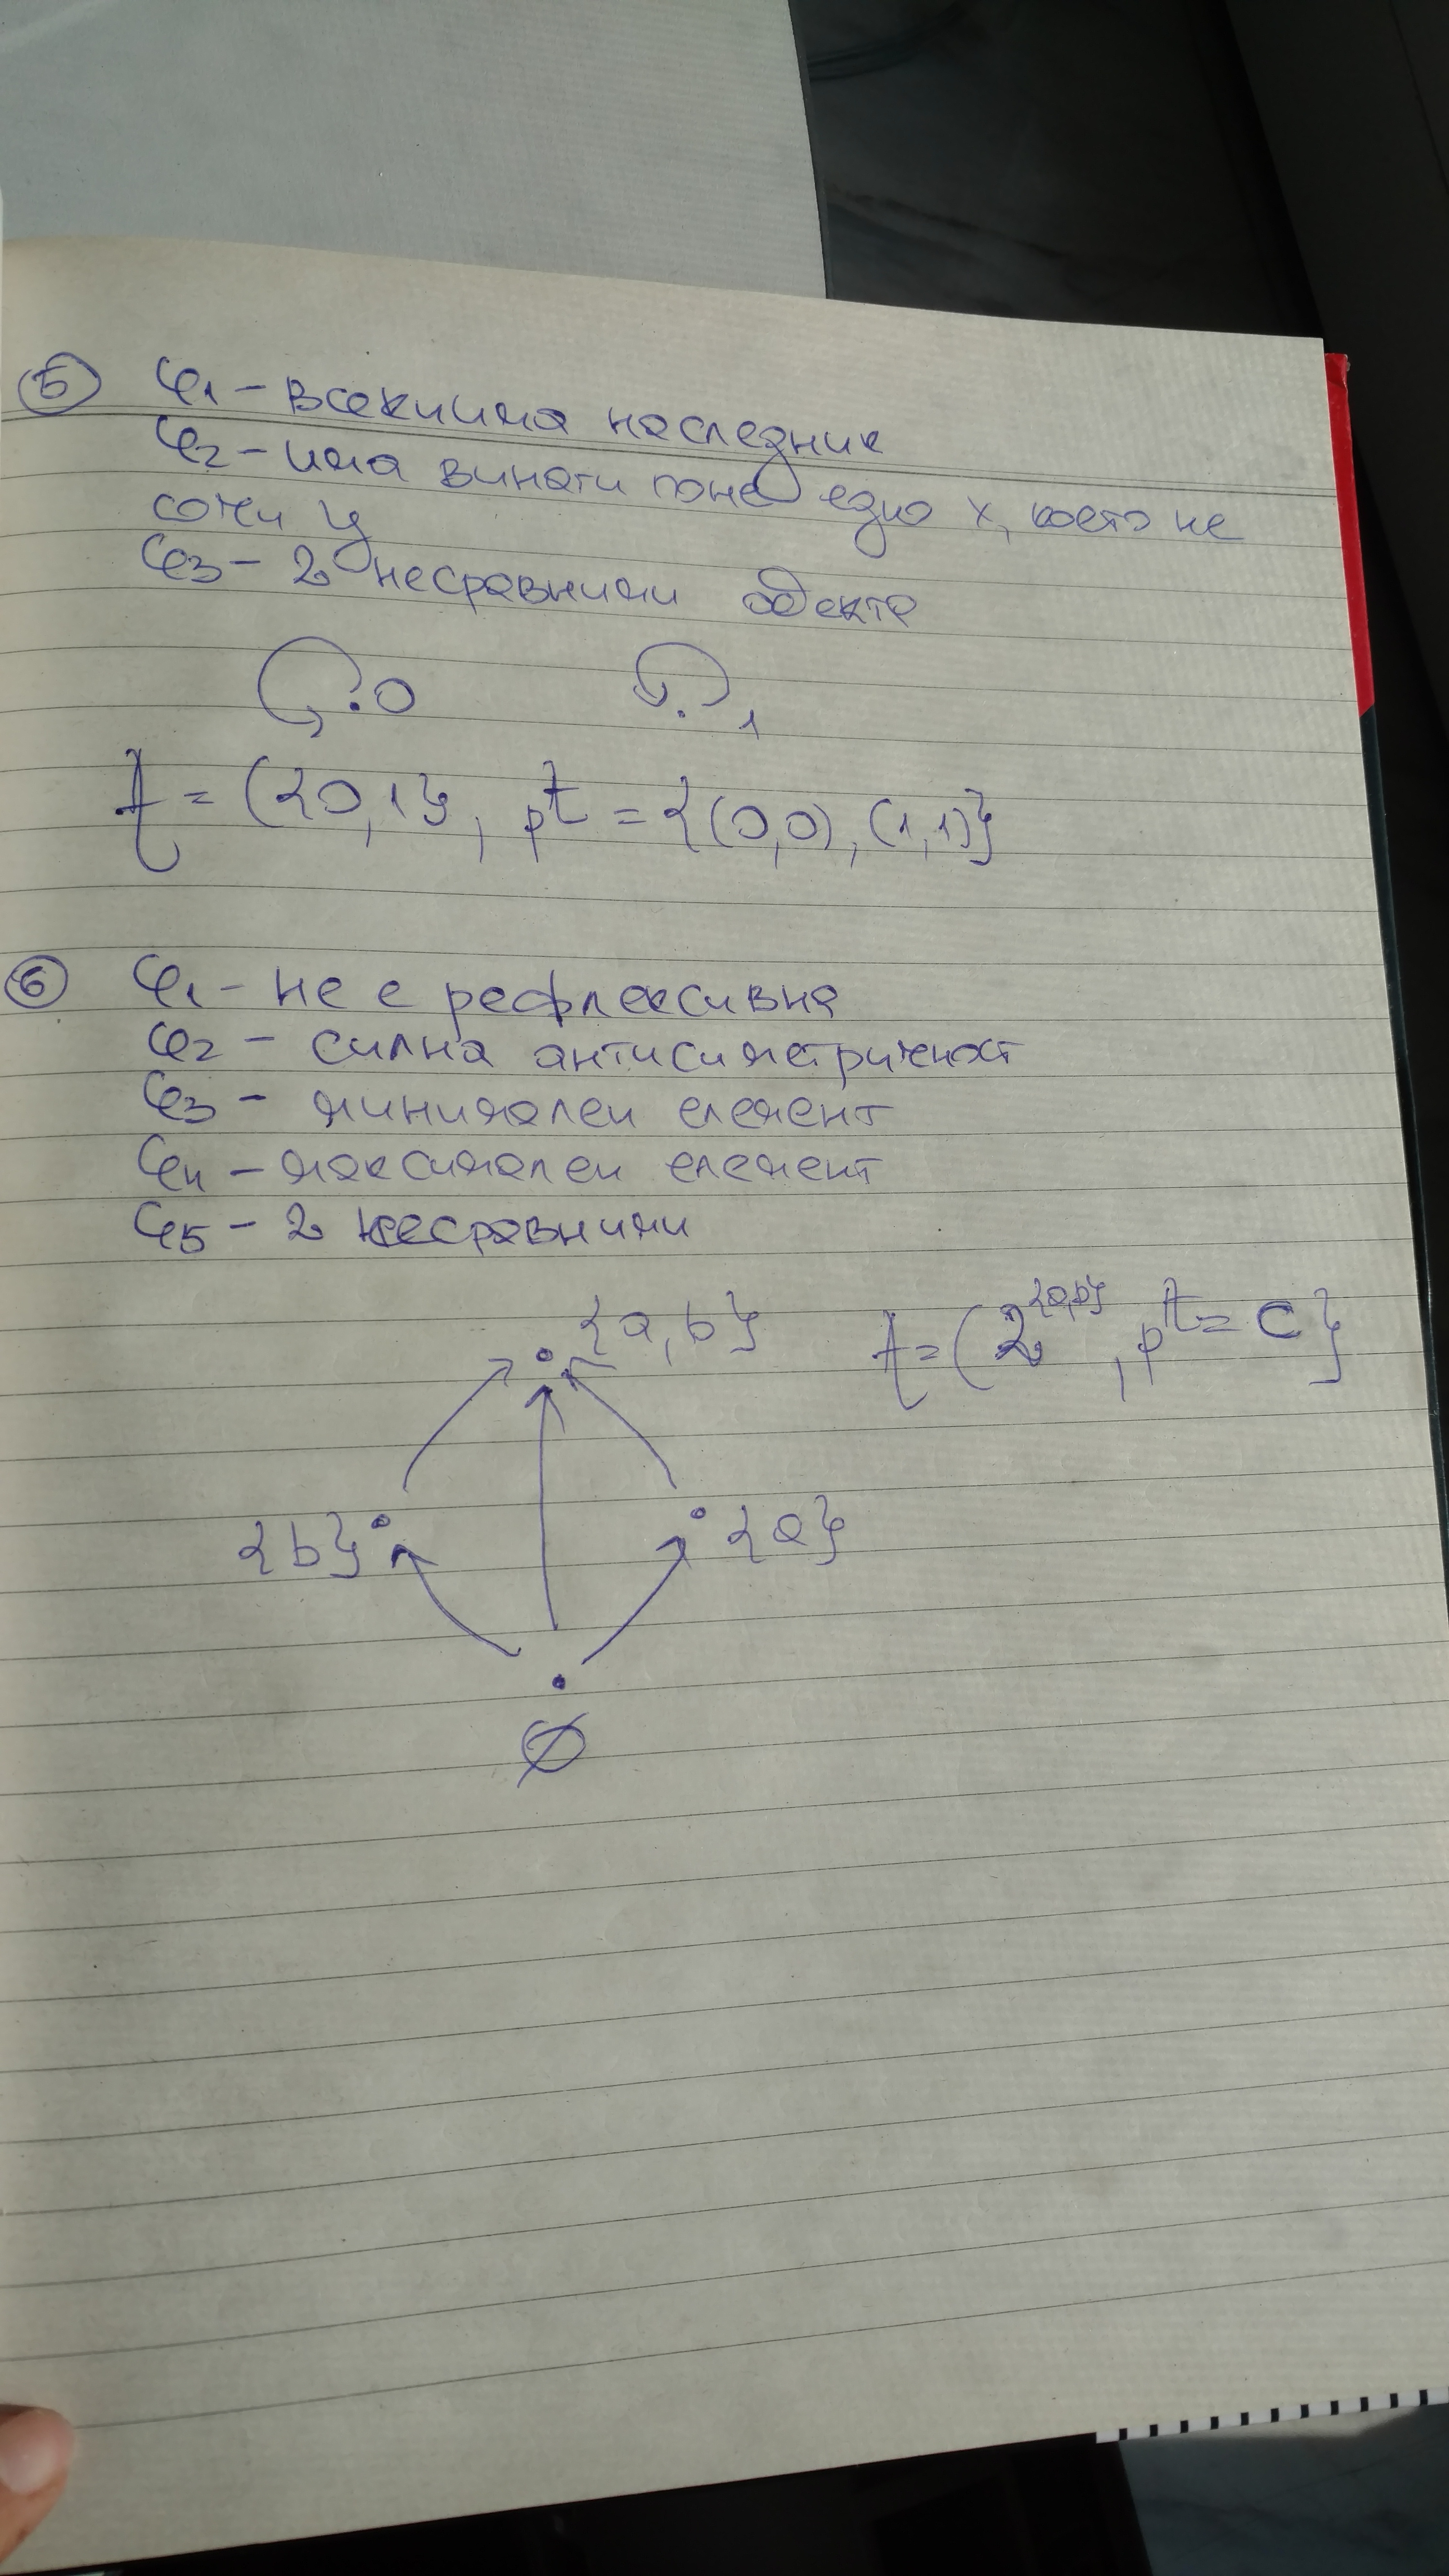 ⑤ φ1 – всеки има наследник
φ2 – има винаги поне едно x, което не
сочи y
φ3 – 2 несравними обекта
0 1
A = ({0,1}, p^A = {(0,0), (1,1)}
⑥ φ1 – не е рефлексивна
φ2 – силна антисиметричност
φ3 – минимален елемент
φ4 – максимален елемент
φ5 – 2 несравними
{a,b} A = (2^{a,b}, p^A = ⊂}
{b} {a}
∅